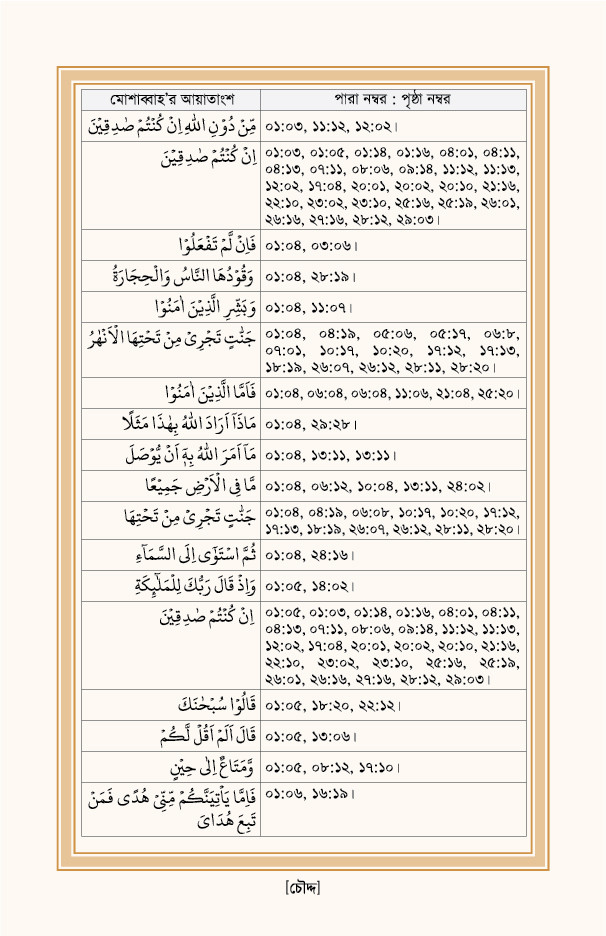 মোশাব্বাহ'র আয়াতাংশ পারা নম্বর : পৃষ্ঠা নম্বর
مِّنْ دُوْنِ اللّٰهِ اِنْ كُنْتُمْ صٰدِقِيْنَ ০১:০৩, ১১:১২, ১২:০২।
اِنْ كُنْتُمْ صٰدِقِيْنَ ০১:০৩, ০১:০৫, ০১:১৪, ০১:১৬, ০৪:০১, ০৪:১১,
০৪:১৩, ০৭:১১, ০৮:০৬, ০৯:১৪, ১১:১২, ১১:১৩,
১২:০২, ১৭:০৪, ২০:০১, ২০:০২, ২০:১০, ২১:১৬,
২২:১০, ২৩:০২, ২৩:১০, ২৫:১৬, ২৫:১৯, ২৬:০১,
২৬:১৬, ২৭:১৬, ২৮:১২, ২৯:০৩।
فَاِنْ لَّمْ تَفْعَلُوْا ০১:০৪, ০৩:০৬।
وَقُوْدُهَا النَّاسُ وَالْحِجَارَةُ ০১:০৪, ২৮:১৯।
وَبَشِّرِ الَّذِيْنَ اٰمَنُوْا ০১:০৪, ১১:০৭।
جَنّٰتٍ تَجْرِىْ مِنْ تَحْتِهَا الْاَنْهٰرُ ০১:০৪, ০৪:১৯, ০৫:০৬, ০৫:১৭, ০৬:৮,
০৭:০১, ১০:১৭, ১০:২০, ১৭:১২, ১৭:১৩,
১৮:১৯, ২৬:০৭, ২৬:১২, ২৮:১১, ২৮:২০।
فَاَمَّا الَّذِيْنَ اٰمَنُوْا ০১:০৪, ০৬:০৪, ০৬:০৪, ১১:০৬, ২১:০৪, ২৫:২০।
مَاذَآ اَرَادَ اللّٰهُ بِهٰذَا مَثَلًا ০১:০৪, ২৯:২৮।
مَآ اَمَرَ اللّٰهُ بِهٖٓ اَنْ يُّوْصَلَ ০১:০৪, ১৩:১১, ১৩:১১।
مَّا فِى الْاَرْضِ جَمِيْعًا ০১:০৪, ০৬:১২, ১০:০৪, ১৩:১১, ২৪:০২।
جَنّٰتٍ تَجْرِىْ مِنْ تَحْتِهَا ০১:০৪, ০৪:১৯, ০৬:০৮, ১০:১৭, ১০:২০, ১৭:১২,
১৭:১৩, ১৮:১৯, ২৬:০৭, ২৬:১২, ২৮:১১, ২৮:২০।
ثُمَّ اسْتَوٰٓى اِلَى السَّمَآءِ ০১:০৪, ২৪:১৬।
وَاِذْ قَالَ رَبُّكَ لِلْمَلٰٓئِكَةِ ০১:০৫, ১৪:০২।
اِنْ كُنْتُمْ صٰدِقِيْنَ ০১:০৫, ০১:০৩, ০১:১৪, ০১:১৬, ০৪:০১, ০৪:১১,
০৪:১৩, ০৭:১১, ০৮:০৬, ০৯:১৪, ১১:১২, ১১:১৩,
১২:০২, ১৭:০৪, ২০:০১, ২০:০২, ২০:১০, ২১:১৬,
২২:১০, ২৩:০২, ২৩:১০, ২৫:১৬, ২৫:১৯,
২৬:০১, ২৬:১৬, ২৭:১৬, ২৮:১২, ২৯:০৩।
قَالُوْا سُبْحٰنَكَ ০১:০৫, ১৮:২০, ২২:১২।
قَالَ اَلَمْ اَقُلْ لَّكُمْ ০১:০৫, ১৩:০৬।
وَّمَتَاعٌ اِلٰى حِيْنٍ ০১:০৫, ০৮:১২, ১৭:১০।
فَاِمَّا يَاْتِيَنَّكُمْ مِّنِّىْ هُدًى فَمَنْ ০১:০৬, ১৬:১৯।
تَبِعَ هُدَاىَ
[চৌদ্দ]